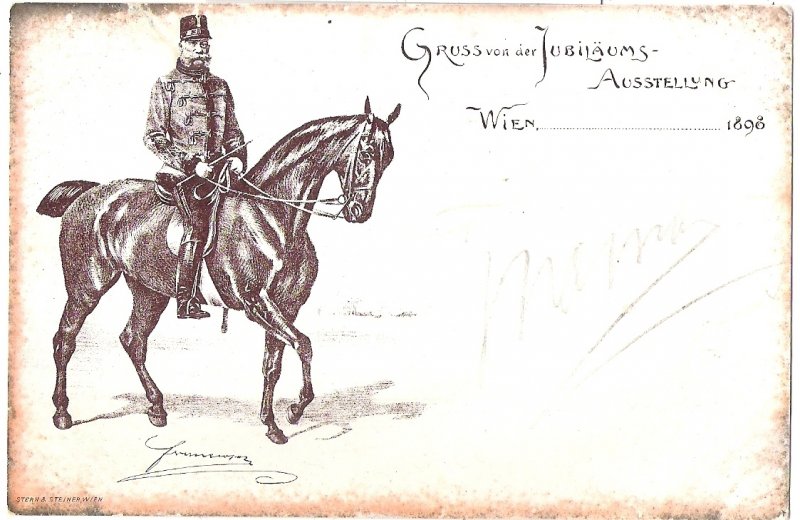 Gruss von der Jubiläums-
Ausstellung
Wien, 1898
STERN & STEINER, WIEN